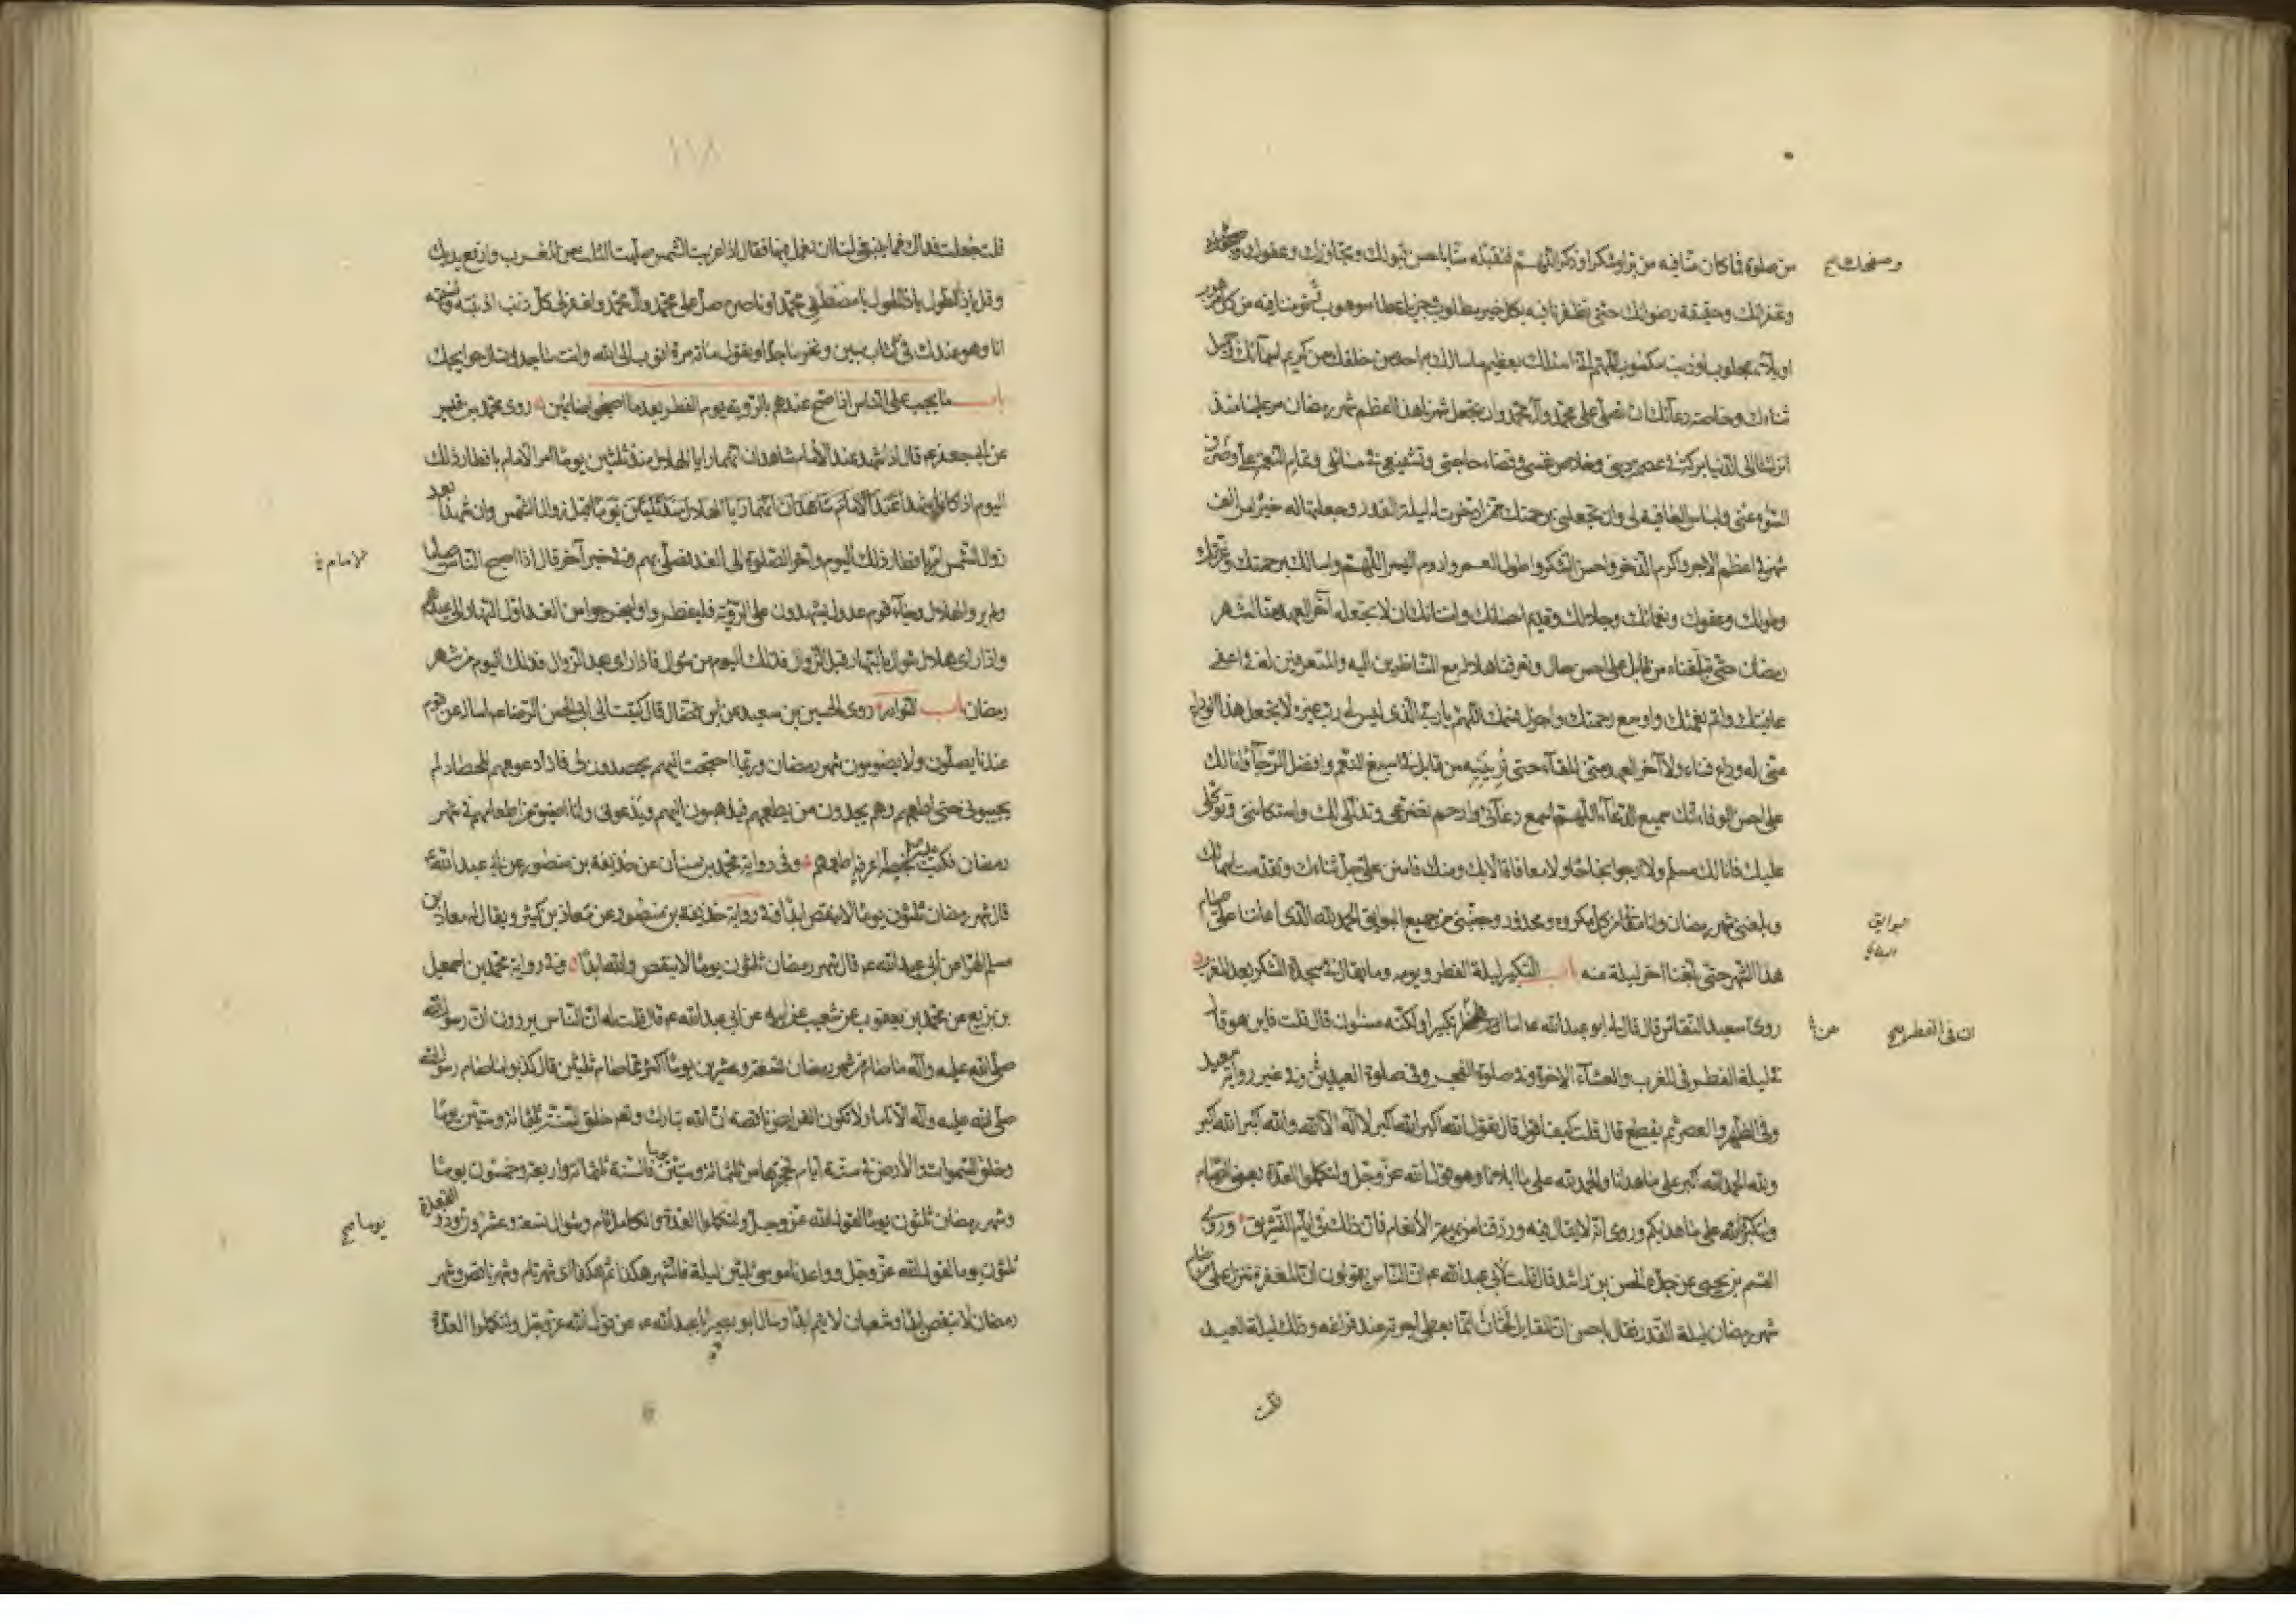 من صلوة فما كان منا فيه من بر او شكر او ذكر اللهم فتقبله منا باحسن قبولك وتجاوزك وعفوك
وغفرانك وحقيقة رضوانك حتى تظفرنا فيه بكل خير مطلوب وجزيل عطاء موهوب تؤمنا فيه من كل
او بلاء مجلوب او ذنب مكسوب اللهم انى اسئلك بعظيم ما سالك به احد من خلقك من كريم اسمائك وجميل
ثنائك وخاصة دعائك ان تصلى على محمد وآل محمد وان تجعل شهرنا هذا اعظم شهر رمضان مر علينا منذ
انزلتنا الى الدنيا بركة فى عصمة دينى وخلاص نفسى وقضاء حاجتى وتشفيعى فى مسائلى وتمام النعمة على وصرف
السوء عنى ولباس العافية لى وان تجعلنى برحمتك ممن ادخرت له ليلة القدر وجعلتها له خيرا من الف
شهر فى اعظم الاجر واكرم الذخر واحسن الشكر واطول العمر وادوم اليسر اللهم واسالك برحمتك وعزتك
وطولك وعفوك ونعمائك وجلالك وقديم احسانك وامتنانك ان لا تجعله آخر العهد منا لشهر
رمضان حتى تبلغناه من قابل على احسن حال وتعرفنا هلاله مع الناظرين اليه والمتعرفين له فى اعفى
عافيتك واتم نعمتك واوسع رحمتك واجزل قسمك اللهم يا رب الذى ليس لى رب غيره لا تجعل هذا الوداع
منى له وداع فناء ولا آخر العهد منى للقاء حتى ترينيه من قابل فى اسبغ النعم وافضل الرجاء وانا لك
على احسن الوفاء انك سميع الدعاء اللهم اسمع دعائى وارحم تضرعى وتذللى لك واستكانتى وتوكلى
عليك فانا لك مسلم ولا ارجو نجاحا ولا معافاة الا بك ومنك فامنن على جل ثناءك وتقدست اسمائك
وبلغنى شهر رمضان وانا معافا من كل مكروه ومحذور وجنبنى من جميع البوايق الحمد لله الذى اعاننا على صيام
هذا الشهر حتى بلغنا اخر ليلة منه باب التكبير ليلة الفطر ويومه وما يقال فى سجدة الشكر بعد المغرب
روى سعيد النقاش قال قال لى ابو عبد الله ع اما ان فى الفطر تكبيرا ولكنه مسنون قال قلت فاين هو قال
فى ليلة الفطر فى المغرب والعشاء الاخرة وفى صلوة الفجر وفى صلوة العيدين وفى غير رواية سعيد
وفى الظهر والعصر ثم يقطع قال قلت كيف اقول قال تقول الله اكبر الله اكبر لا اله الا الله والله اكبر الله اكبر
ولله الحمد الله اكبر على ما هدانا والحمد لله على ما ابلانا وهو قول الله عز وجل ولتكملوا العدة يعنى الصيام
ولتكبروا الله على ما هديكم وروى انه لا يقال فيه ورزقنا من بهيمة الانعام فان ذلك فى ايام التشريق وروى
القسم بن يحيى عن جده الحسن بن راشد قال قلت لابى عبد الله ع ان الناس يقولون ان المغفرة تنزل على
شهر رمضان ليلة القدر فقال يا حسن ان القايل لحان انما يعطى اجرته عند فراغه وذلك ليلة العيد
وصفحك
البوايق
ان فى الفطر
١١٨
قلت جعلت فداك فما ينبغى لنا ان نعمل فيها فقال اذا غربت الشمس صليت الثلث من المغرب وارفع يديك
وقل يا ذا الطول يا ذا الحول يا مصطفى محمد وناصره صل على محمد وآل محمد واغفر لى كل ذنب اذنبته ونسيته
انا وهو عندك فى كتاب مبين وتخر ساجدا وتقول مائة مرة اتوب الى الله وانت ساجد وتسال حوايجك
باب ما يجب على الناس اذا صح عندهم بالرؤية يوم الفطر بعد ما اصبحوا صائمين روى محمد بن قيس
عن ابى جعفر ع قال اذا شهد عند الامام شاهدان انهما رايا الهلال منذ ثلثين يوما امر الامام بافطار ذلك
اليوم اذا كانا شهدا عند الامام شاهدان انهما رايا الهلال منذ ثلثين يوما قبل زوال الشمس وان شهدا بعد
زوال الشمس امر بافطار ذلك اليوم واخر الصلوة الى الغد فصلى بهم وفى خبر آخر قال اذا اصبح الناس صياما
ولم يروا الهلال وجاء قوم عدول يشهدون على الرؤية فليفطروا وليخرجوا من الغد اول النهار الى عيدهم
واذا راى هلال شوال بالنهار قبل الزوال فذلك اليوم من شوال فاذا راى بعد الزوال فذلك اليوم من شهر
رمضان باب النوادر روى الحسين بن سعيد عن ابن فضال قال كتبت الى ابى الحسن الرضا ع اساله عن قوم
عندنا يصلون ولا يصومون شهر رمضان وربما احتجت اليهم يحصدون لى فاذا دعوتهم للحصاد لم
يجيبونى حتى اطعمهم وهم يجدون من يطعمهم فيذهبون اليهم ويدعونى وانا اضيق من اطعامهم فى شهر
رمضان فكتب بخطه اعرفه اطعمهم وفى رواية محمد بن سنان عن حذيفة بن منصور عن ابى عبد الله ع
قال شهر رمضان ثلثون يوما لا ينقص ابدا وفى رواية حذيفة بن منصور عن معاذ بن كثير ويقال له معاذ بن
مسلم الهرا عن ابى عبد الله ع قال شهر رمضان ثلثون يوما لا ينقص والله ابدا وفى رواية محمد بن اسمعيل
بن بزيع عن محمد بن يعقوب عن شعيب عن ابيه عن ابى عبد الله ع قال قلت له ان الناس يروون ان رسول الله
صلى الله عليه وآله ما صام من شهر رمضان تسعة وعشرين يوما اكثر مما صام ثلثين قال كذبوا ما صام رسول الله
صلى الله عليه وآله الا تاما ولا تكون الفرايض ناقصة ان الله تبارك وتعالى خلق السنة ثلثمائة وستين يوما
وخلق السموات والارض فى ستة ايام فحجزها من ثلثمائة وستين يوما فالسنة ثلثمائة واربعة وخمسون يوما
وشهر رمضان ثلثون يوما لقول الله عز وجل ولتكملوا العدة والكامل تام وشوال تسعة وعشرون وذو القعدة
ثلثون يوما لقول الله عز وجل وواعدنا موسى ثلثين ليلة فالشهر هكذا ثم هكذا اى شهر تام وشهر ناقص وشهر
رمضان لا ينقص ابدا وشعبان لا يتم ابدا وسال ابو بصير ابا عبد الله ع عن قول الله عز وجل ولتكملوا العدة
الامام
يوما